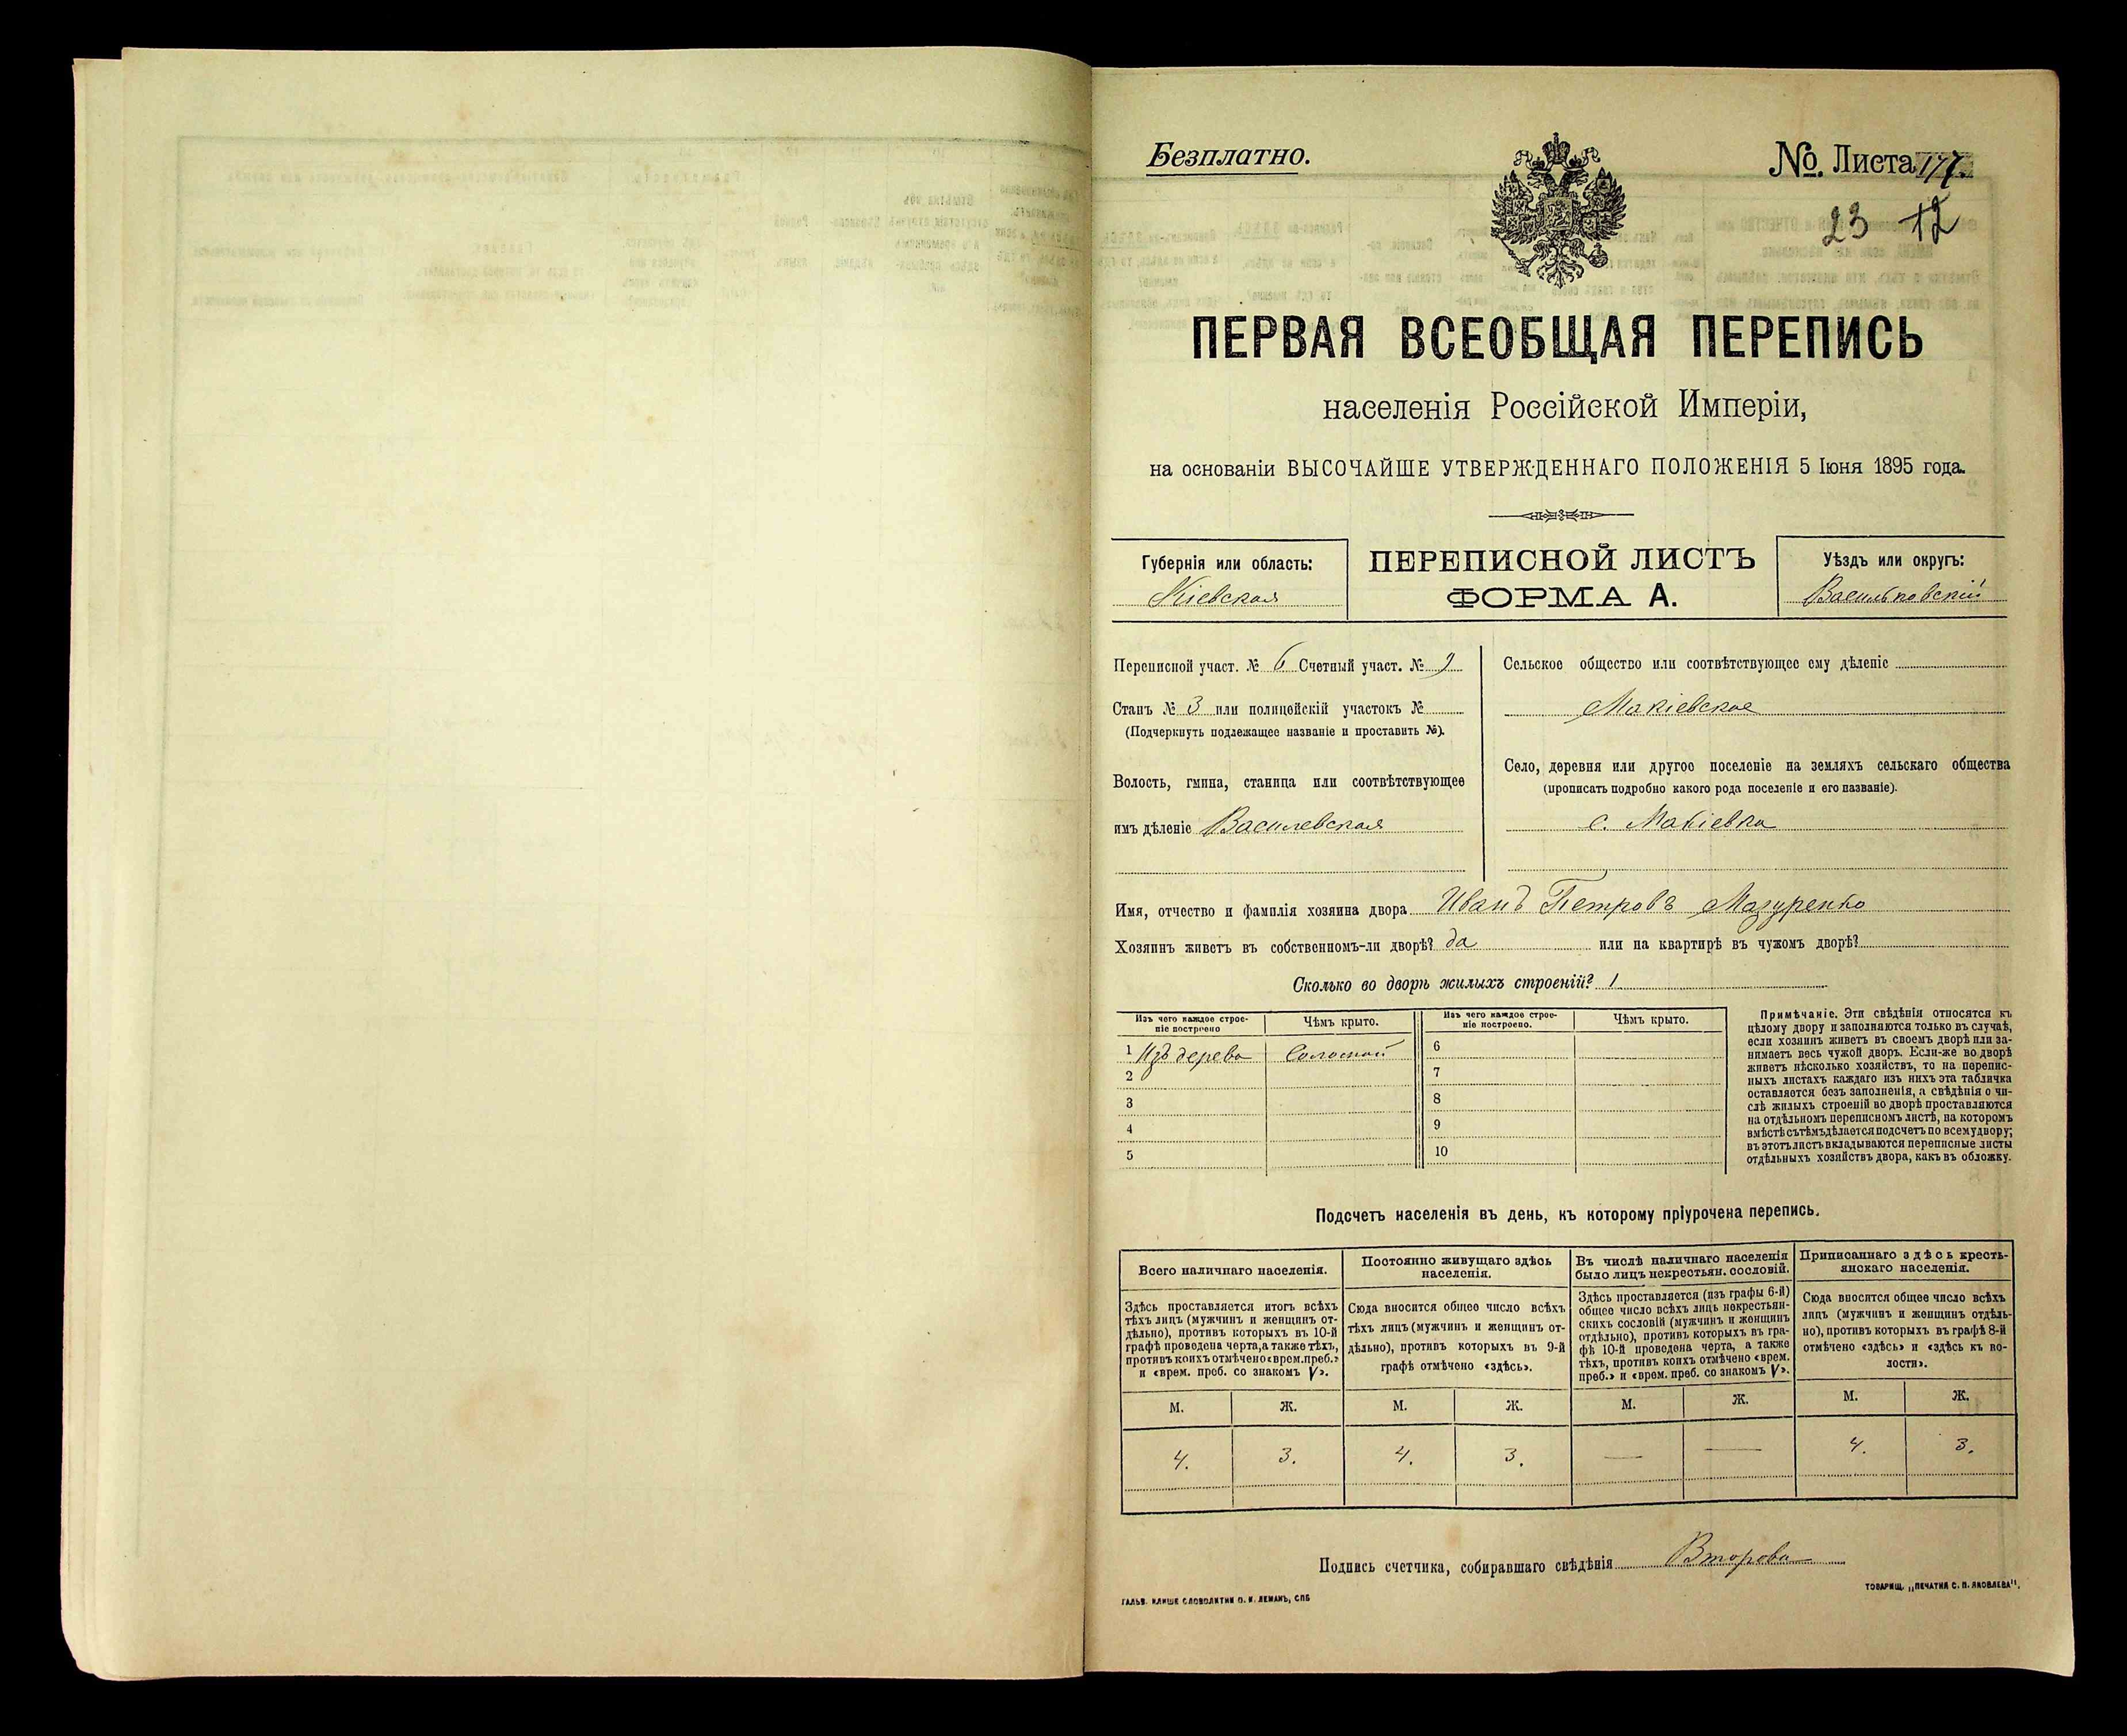 Безплатно.
№ Листа 177
23 12
ПЕРВАЯ ВСЕОБЩАЯ ПЕРЕПИСЬ
населенія Россійской Имперіи,
на основаніи ВЫСОЧАЙШЕ УТВЕРЖДЕННАГО ПОЛОЖЕНІЯ 5 Іюня 1895 года.
Губернія или область:
Кіевская
ПЕРЕПИСНОЙ ЛИСТЪ
ФОРМА А.
Уѣздъ или округъ:
Васильковскій
Переписной участ. № 6 Счетный участ. № 9
Станъ № 3 или полицейскій участокъ №
(Подчеркнуть подлежащее названіе и проставить №).
Волость, гмина, станица или соотвѣтствующее
имъ дѣленіе Василевская
Сельское общество или соотвѣтствующее ему дѣленіе
Макіевское
Село, деревня или другое поселеніе на земляхъ сельскаго общества
(прописать подробно какого рода поселеніе и его названіе).
с. Макіевка
Имя, отчество и фамилія хозяина двора Иванъ Петровъ Мазуренко
Хозяинъ живетъ въ собственномъ-ли дворѣ? да или на квартирѣ въ чужомъ дворѣ?
Сколько во дворѣ жилыхъ строеній? 1
Изъ чего каждое строе-
ніе построено
Чѣмъ крыто.
Изъ чего каждое строе-
ніе построено.
Чѣмъ крыто.
1 Изъ дерева Соломой
2
3
4
5
6
7
8
9
10
Примѣчаніе. Эти свѣдѣнія относятся къ
цѣлому двору и заполняются только въ случаѣ,
если хозяинъ живетъ въ своемъ дворѣ или за-
нимаетъ весь чужой дворъ. Если-же во дворѣ
живетъ нѣсколько хозяйствъ, то на перепис-
ныхъ листахъ каждаго изъ нихъ эта табличка
оставляется безъ заполненія, а свѣдѣнія о чи-
слѣ жилыхъ строеній во дворѣ проставляются
на отдѣльномъ переписномъ листѣ, на которомъ
вмѣстѣ съ тѣмъ дѣлается подсчетъ по всему двору;
въ этотъ листъ вкладываются переписные листы
отдѣльныхъ хозяйствъ двора, какъ въ обложку.
Подсчетъ населенія въ день, къ которому пріурочена перепись.
Всего наличнаго населенія.
Здѣсь проставляется итогъ всѣхъ
тѣхъ лицъ (мужчинъ и женщинъ от-
дѣльно), противъ которыхъ въ 10-й
графѣ проведена черта, а также тѣхъ,
противъ коихъ отмѣчено «врем. преб.»
и «врем. преб. со знакомъ V».
Постоянно живущаго здѣсь
населенія.
Сюда вносится общее число всѣхъ
тѣхъ лицъ (мужчинъ и женщинъ от-
дѣльно), противъ которыхъ въ 9-й
графѣ отмѣчено «здѣсь».
Въ числѣ наличнаго населенія
было лицъ некрестьян. сословій.
Здѣсь проставляется (изъ графы 6-й)
общее число всѣхъ лицъ некрестьян-
скихъ сословій (мужчинъ и женщинъ
отдѣльно), противъ которыхъ въ гра-
фѣ 10-й проведена черта, а также
тѣхъ, противъ коихъ отмѣчено «врем.
преб.» и «врем. преб. со знакомъ V».
Приписаннаго здѣсь кресть-
янскаго населенія.
Сюда вносится общее число всѣхъ
лицъ (мужчинъ и женщинъ отдѣль-
но), противъ которыхъ въ графѣ 8-й
отмѣчено «здѣсь» и «здѣсь къ во-
лости».
М. Ж. М. Ж. М. Ж. М. Ж.
4. 3. 4. 3. — — 4. 3.
Подпись счетчика, собиравшаго свѣдѣнія Второва
ГАЛЬВ. КЛИШЕ СЛОВОЛИТНИ О. И. ЛЕМАНЪ, СПБ
ТОВАРИЩ. „ПЕЧАТНЯ С. П. ЯКОВЛЕВА".